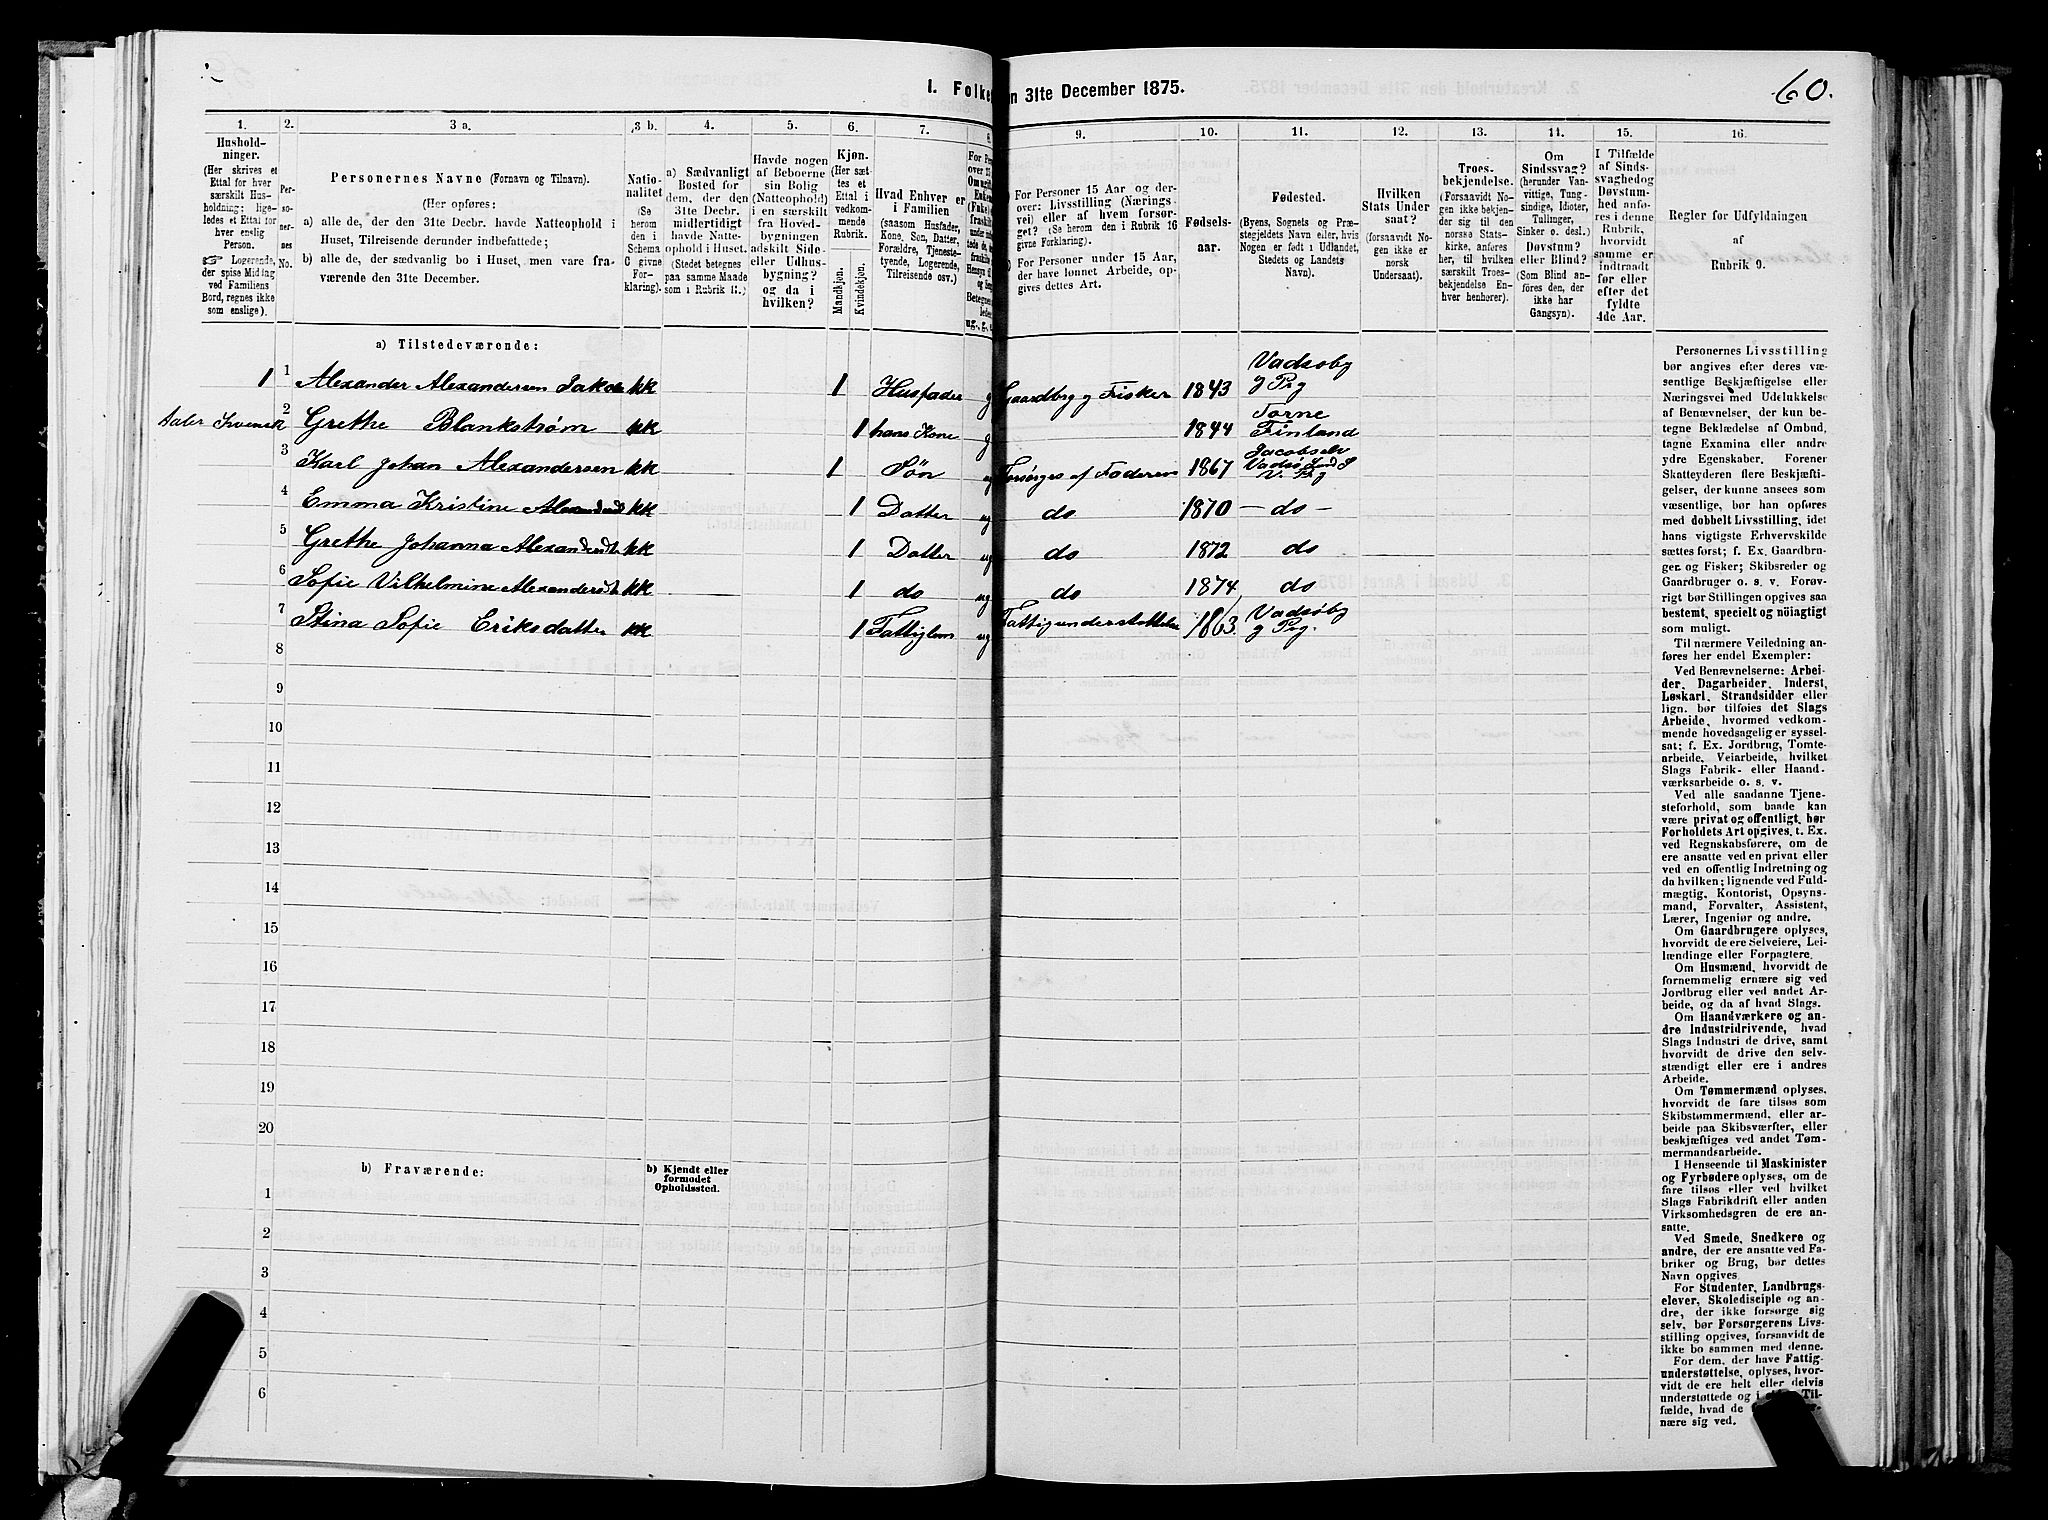 60.
I. Folke
n 31te December 1875.
1. 2. 3 a. 3 b. 4. 5. 6. 7. 8 9. 10. 11. 12. 13. 14. 15. 16.
Hushold-
ninger.
(Her skrives et
Ettal for hver
særskilt Hus-
holdning; lige-
ledes et Ettal for
hver enslig
Person.
☞ Logerende,
der spise Middag
ved Familiens
Bord, regnes ikke
som enslige).
Per-
so-
ner-
nes
No.
Personernes Navne (Fornavn og Tilnavn).
(Her opføres:
a) alle de, der den 31te Decbr. havde Natteophold i
Huset, Tilreisende derunder indbefattede;
b) alle de, der sædvanlig bo i Huset, men vare fra-
værende den 31te December.
Natio-
nalitet
(Se
herom
den i
Schema
C givne
For-
klaring).
a) Sædvanligt
Bosted for
dem, der den
31te Decbr.
midlertidigt
havde Natte-
ophold i Huset.
(Stedet betegnes
paa samme Maade
som i Rubrik 11.)
Havde nogen
af Beboerne
sin Bolig
(Natteophold)
i en særskilt
fra Hoved-
bygningen
adskilt Side-
eller Udhus-
bygning?
og da i
hvilken?
Kjøn.
(Her sæt-
tes et
Ettal i
vedkom-
mende
Rubrik.
Mandkjøn.
Kvindekjøn.
Hvad Enhver er
i Familien
(saasom Husfader,
Kone, Søn, Datter,
Forældre, Tjeneste-
tyende, Logerende,
Tilreisende osv.)
For Personer 15 Aar og der-
over: Livsstilling (Nærings-
vei) eller af hvem forsør-
get? (Se herom den i Rubrik 16
givne Forklaring).
For Personer under 15 Aar,
der have lønnet Arbeide, op-
gives dettes Art.
Fødsels-
aar.
Fødested.
(Byens, Sognets og Præ-
stegjeldets Navn eller, hvis
Nogen er født i Udlandet,
Stedets og Landets
Navn).
Hvilken
Stats Under
saat?
(forsaavidt No-
gen ikke er
norsk
Undersaat).
Troes-
bekjendelse.
(Forsaavidt No-
gen ikke bekjen-
der sig til den
norske Stats-
kirke, anføres
her, til hvilken
særskilt Troes-
bekjendelse En-
hver henhører).
Om
Sindssvag?
(herunder Van-
vittige, Tung-
sindige, Idioter,
Tullinger,
Sinker o. desl.)
Døvstum?
eller Blind?
(Som Blind an-
føres den, der
ikke har
Gangsyn).
I Tilfælde
af Sinds-
svaghed og
Døvstum-
hed anfø-
res i denne
Rubrik,
hvorvidt
samme er
indtraadt
før eller
efter det
fyldte
4de Aar.
Regler for Udfyldningen
af
Rubrik 9.
a) Tilstedeværende:
1 1 Alexander Alexandersen Jakob kk 1 Husfader g Gaardbr. g Fisker 1843 Vadsøby
g Prg
taler Kvensk 2 Grethe Blankstrøm kk 1 hans Kone g 1844 Torne
Finland
3 Karl Johan Alexandersen kk 1 Søn ug Forsørges af Faderen 1867 Jacobselv
Vadsø Land S
V. Prg
4 Emma Kristine kk 1 Datter ug do 1870 — do —
5 Grethe Johanna Alexandersdt kk 1 Datter ug do 1872 do
6 Sofie Vilhelmine Alexandersdt kk 1 do ug do 1874 do
7 Stina Sofie Eriksdatter kk 1 Fattiglem ug Fattigunderstøttelse 1863. Vadsøby
g Prg.
8
9
10
11
12
13
14
15
16
17
18
19
20
b) Fraværende:
b) Kjendt eller
formodet
Opholdssted.
1
2
3
4
5
6
Personernes Livsstilling
bør angives efter deres væ-
sentlige Beskjæftigelse eller
Næringsvei med Udelukkelse
af Benævnelser, der kun be-
tegne Beklædelse af Ombud,
tagne Examina eller andre
ydre Egenskaber. Forener
Skatteyderen flere Beskjæfti-
gelser, der kunne ansees som
væsentlige, bør han opføres
med dobbelt Livsstilling, idet
hans vigtigste Erhvervskilde
sættes først; f. Ex. Gaardbru-
ger og Fisker; Skibsreder og
Gaardbruger o. s. v. Forøv-
rigt bør Stillingen opgives saa
bestemt, specielt og nöiagtigt
som muligt.
Til nærmere Veiledning an-
føres her endel Exempler:
Ved Benævnelserne: Arbei-
der, Dagarbeider, Inderst,
Løskarl, Strandsidder eller
lign. bør tilføies det Slags
Arbeide, hvormed vedkom-
mende hovedsagelig er syssel-
sat; f. Ex. Jordbrug, Tomte-
arbeide, Veiarbeide, hvilket
Slags Fabrik- eller Haand-
værksarbeide o. s. v.
Ved alle saadanne Tjene-
steforhold, som baade kan
være privat og offentligt, bør
Forholdets Art opgives, t. Ex.
ved Regnskabsførere, om de
ere ansatte ved en privat eller
ved en offentlig Indretning og
da hvilken; lignende ved Fuld-
mægtig, Kontorist, Opsyns-
mand, Forvalter, Assistent,
Lærer, Ingeniør og andre.
Om Gaardbrugere oplyses,
hvorvidt de ere Selveiere, Lei-
lændinge eller Forpagtere.
Om Husmænd, hvorvidt de
fornemmelig ernære sig ved
Jordbrug eller ved andet Ar-
beide, og da af hvad Slags.
Om Haandværkere og an-
dre Industridrivende, hvad
Slags Industri de drive, samt
hvorvidt de drive den selv-
stændigt eller ere i andres
Arbeide.
Om Tømmermænd oplyses,
hvorvidt de fare tilsøs som
Skibstømmermænd, eller ar-
beide paa Skibsværfter, eller
beskjæftiges ved andet Tøm-
mermandsarbeide.
I Henseende til Maskinister
og Fyrbødere oplyses, om de
fare tilsøs eller ved hvilket
Slags Fabrikdrift eller anden
Virksomhedsgren de ere an-
satte.
Ved Smede, Snedkere og
andre, der ere ansatte ved Fa-
briker og Brug, bør dettes
Navn opgives.
For Studenter, Landbrugs-
elever, Skoledisciple og an-
dre, der ikke forsørge sig
selv, bør Forsørgerens Livs-
stilling opgives, forsaavidt de
ikke bo sammen med denne.
For dem, der have Fattig-
understøttelse, oplyses, hvor-
vidt de ere helt eller delvis
understøttede og i Til-
fælde, hvad de
nære sig ved.